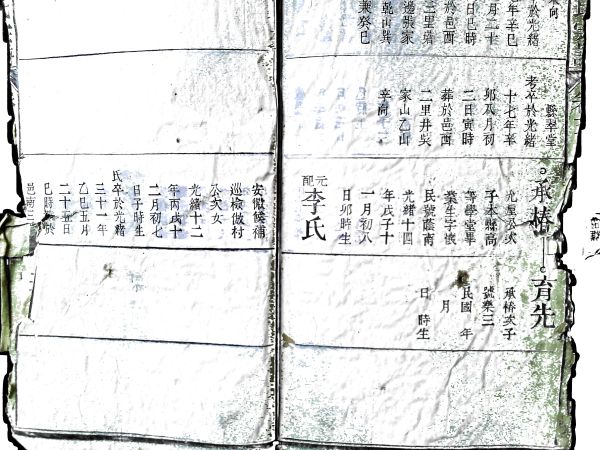 於光緒
年辛巳
月二十
日巳時
於邑西
三里
邊張家
乾山巽
兼癸巳
縣翠堂
考卒於光緒
十七年辛
卯八月初
二日寅時
葬於邑西
二里井吳
家山乙山
辛向
承椿
育先
光垕公次
子本縣高
等學堂畢
業生字
民號蔭南
光緒十四
年戊子十
一月初八
日卯時生
元配
李氏
承椿次子
號樂三
民國 年
月
日 時生
安徽候補
巡檢傲村
公次女
光緒十二
年丙戌十
二月初七
日子時生
氏卒於光緒
三十一年
乙巳五月
二十五日
巳時
邑南三